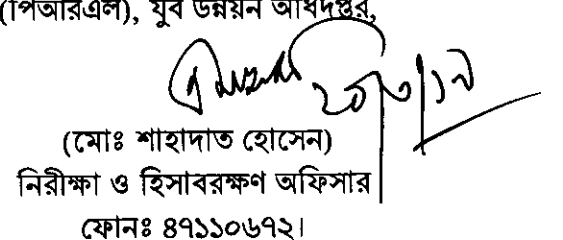 (পিআরএল), যুব উন্নয়ন অধিদপ্তর,
২০/৩/১৯
(মোঃ শাহাদাত হোসেন)
নিরীক্ষা ও হিসাবরক্ষণ অফিসার
ফোনঃ ৪৭১১০৬৭২।